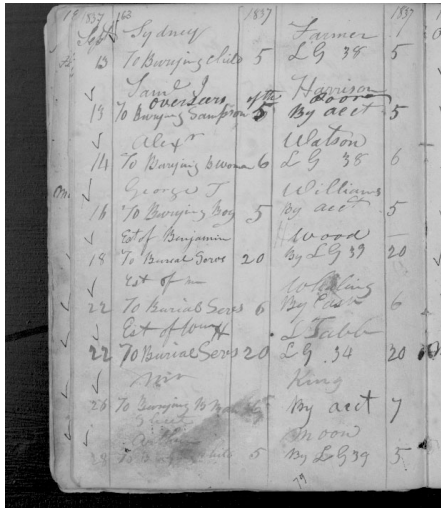 1837 163 1837 1837
Sept Sydney Farmer
13 To Burying Child 5 L G 38 5
Saml J Harrison
overseers of the Poore
13 To Burying Sampson 5 By acct 5
Alexr Watson
14 To Burying B Woman 6 L G 38 6
George T Williams
16 To Burying Boy 5 By acct 5
Est of Benjamin Wood
18 To Burial Servs 20 By L G 39 20
Est of
22 To Burial Servs 6 By Cash 6
Est of L Tabb
22 To Burial Servs 20 L G 34 20
King
26 To Burying B By acct 7
Moon
28 To 5 By L G 39 5
79